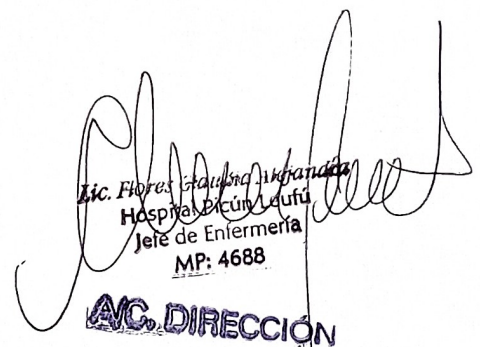 Lic. Flores Claudia Alejandra
Hospital Picún Leufú
Jefe de Enfermería
MP: 4688
A/C. DIRECCIÓN